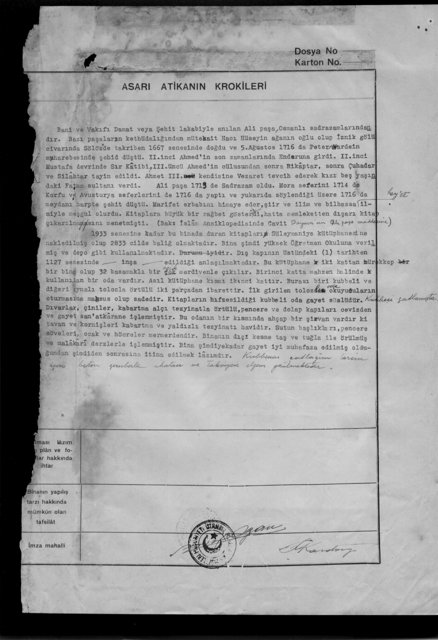 Dosya No
Karton No.
ASARI ATİKANIN KROKİLERİ
Bani ve Vakıfı Damat veya Şehit lakabiyle anılan Ali paşa, Osmanlı sadrazamlarından
dır. Bazı paşaların kethüdalığından mütekait Hacı Hüseyin ağanın oğlu olup İznik gölü
civarında Sölözde takriben 1667 senesinde doğdu ve 5.Ağustos 1716 da Petervardein
muharebesinde şehid düştü. II.inci Ahmed'in son zamanlarında Enderuna girdi. II.inci
Mustafa devrinde Sır Kâtibi, III.üncü Ahmed'in cülusundan sonra Rikâptar, sonra Çuhadar
ve Silahtar tayin edildi. Ahmet III. kendisine Vezaret tevcih ederek kızı beş yaşın
daki Fatma sultanı verdi. Ali paşa 1713 de Sadrazam oldu. Mora seferini 1714 de
Korfu ve Avusturya seferlerini de 1716 da yaptı ve yukarıda söylendiği üzere 1716 da
meydanı harpte şehit düştü. Marifet erbabını himaye eder, şiir ve ilim ve bilhassa il-
miyle meşgul olurdu. Kitaplara büyük bir rağbet gösterdi, hatta memleketten dışarı kitap
çıkarılmamasını menetmişti. (Bak: İslâm Ansiklopedisinde Cavit
1933 senesine kadar bu binada duran kitapları Süleymaniye kütüphanesine
nakledilmiş olup 2833 cilde baliğ olmaktadır. Bina şimdi yüksek Öğretmen Okuluna veril
miş ve depo gibi kullanılmaktadır. Dış kapının üstündeki (1) tarihten
1127 senesinde inşa edildiği anlaşılmaktadır. Bu kütüphane iki kattan mürekkep her
bir bina olup 32 basamaklı bir merdivenle çıkılır. Birinci katta mahzen halinde
kullanılan bir oda vardır. Asıl kütüphane kısmı ikinci kattır. Burası biri kubbeli ve
diğeri aynalı tolozla örtülü iki parçadan ibarettir. İlk girilen tolozlu oda okuyucuların
oturmasına mahsus olup sadedir. Kitapların hıfzedildiği kubbeli oda gayet süslüdür.
Duvarlar, çiniler, kabartma alçı tezyinatla örtülü, pencere ve dolap kapıları cevizden
ve gayet san'atkârane işlenmiştir. Bu odanın bir kısmında ahşap bir şirvan vardır ki
tavan ve kornişleri kabartma ve yaldızlı tezyinatı havidir. Sütun başlıkları, pencere
söveleri, ocak ve hücreler mermerdendir. Binanın dışı kesme taş ve tuğla ile örülmüş
ve malâkâri derzlerle işlenmiştir. Bina şimdiye kadar gayet iyi muhafaza edilmiş oldu-
ğundan şimdiden sonrasına itina edilmek lâzımdır.
lması lâzım
plân ve fo-
flar hakkında
ihtar
Binanın yapılış
tarzı hakkında
mümkün olan
tafsilât
İmza mahalli